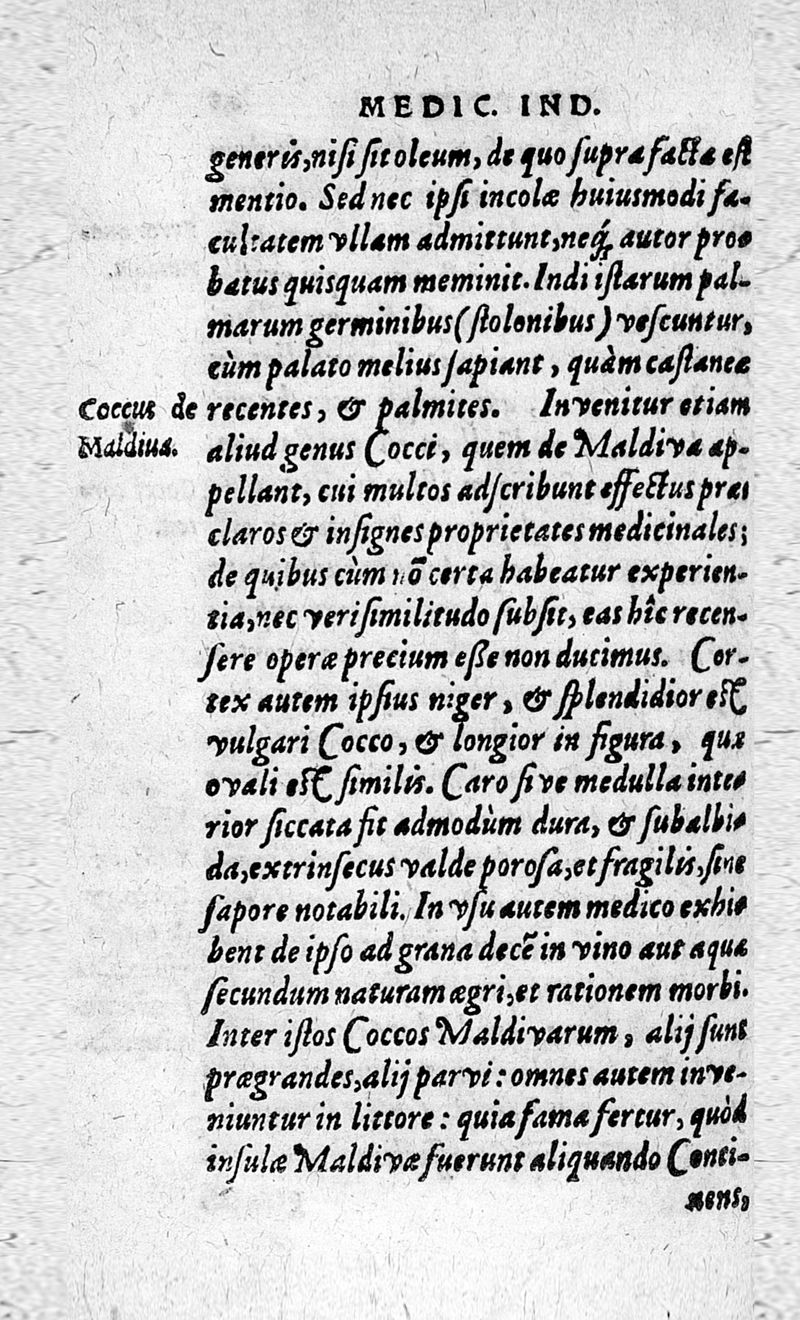 MEDIC. IND.
generis, nisi sit oleum, de quo supra facta est
mentio. Sed nec ipsi incolæ huiusmodi fa-
cultatem vllam admittunt, neq́; autor pro-
batus quisquam meminit. Indi istarum pal-
marum germinibus (stolonibus) vescuntur,
cùm palato melius sapiant, quàm castaneæ
Coccus de
Maldiua.
recentes, & palmites. Invenitur etiam
aliud genus Cocci, quem de Maldiva ap-
pellant, cui multos adscribunt effectus præ
claros & insignes proprietates medicinales;
de quibus cùm nō certa habeatur experien-
tia, nec verisimilitudo subsit, eas hîc recen-
sere operæ precium esse non ducimus. Cor-
tex autem ipsius niger, & splendidior est
vulgari Cocco, & longior in figura, quæ
ovali est similis. Caro sive medulla inte-
rior siccata fit admodùm dura, & subalbi-
da, extrinsecus valde porosa, et fragilis, sine
sapore notabili. In vsu autem medico exhi-
bent de ipso ad grana decē in vino aut aqua
secundum naturam ægri, et rationem morbi.
Inter istos Coccos Maldivarum, alij sunt
prægrandes, alij parvi: omnes autem inve-
niuntur in littore: quia fama fertur, quòd
insulæ Maldivæ fuerunt aliquando Conti-
nens,